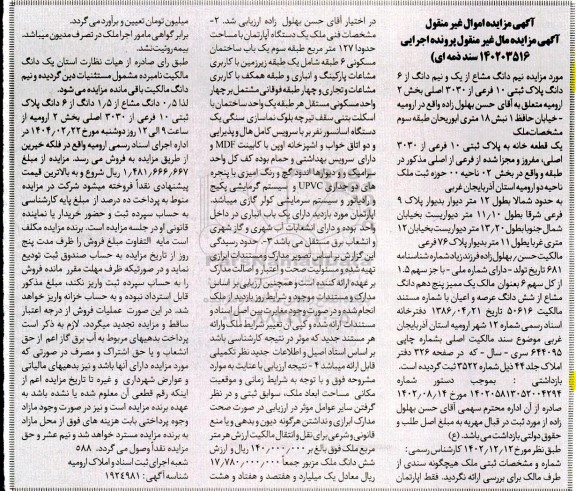 آگهی مزایده اموال غیر منقول
آگهی مزایده مال غیر منقول پرونده اجرایی
۱۴۰۲۰۳۵۱۶ سند ذمه ای)
مورد مزایده نیم دانگ مشاع از یک و نیم دانگ از ۶
دانگ پلاک ثبتی ۱۰ فرعی از ۳۰۳۰ اصلی بخش ۲
ارومیه متعلق به آقای حسن بهلول زاده واقع در ارومیه
- خیابان حافظ ۱ نبش ۱۸ متری ابوریحان طبقه سوم
مشخصات ملک
یک قطعه خانه به پلاک ثبتی ۱۰ فرعی از ۳۰۳۰
اصلی، مفروز و مجزا شده از فرعی از اصلی مذکور در
طبقه و واقع در بخش ۰۲ ناحیه ۰۰ حوزه ثبت ملک
ناحیه دو ارومیه استان آذربایجان غربی
به حدود شمالا بطول ۱۲ متر دیوار بدیوار پلاک ۹
فرعی شرقا بطول ۱۱/۱۰ متر دیواریست بخیابان
شمال جنوبا بطول ۱۳/۲۰ متر دیواریست بخیابان ۱۲
متری غربا بطول ۱۱ متر بدیوار پلاک ۷۶ فرعی
مالکیت حسن بهلول زاده فرزند زیاد شماره شناسنامه
۶۸۱ تاریخ تولد - دارای شماره ملی - با جز سهم ۱.۵
از کل سهم ۶ بعنوان مالک یک ممیز پنج دهم دانگ
مشاع از شش دانگ عرصه و اعیان با شماره مستند
مالکیت ۵۰۶۱۶ تاریخ ۱۳۸۶/۰۴/۲۱ دفترخانه
اسناد رسمی شماره ۱۲ شهر ارومیه استان آذربایجان
غربی موضوع سند مالکیت اصلی بشماره چاپی
۶۴۴۰۹۵ سری - سال - که در صفحه ۳۲۶ دفتر
املاک جلد ۴۴ ذیل شماره ۳۵۲۲ ثبت گردیده است.
بازداشتی : بموجب دستور شماره
۱۴۰۲۰۵۸۱۳۰۵۲۰۰۴۲۹۴ مورخ ۱۴۰۲/۰۸/۱۴
صادره از آن اداره محترم سهمی آقای حسن بهلول
زاده از مورد ثبت در قبال مهریه به مبلغ اصل طلب و
حقوق دولتی بازداشت می باشد. (ع)
طبق نظر مورخ ۱۴۰۲/۱۲/۱۲ کارشناس رسمی:
شماره و مشخصات ثبتی ملک هیچگونه سندی از
طرف مالک برای بررسی ارائه نگردید. فقط آپارتمان
در اختیار آقای حسن بهلول زاده ارزیابی شد. ۲-
مشخصات فنی ملک یک دستگاه آپارتمان با مساحت
حدودا ۱۲۷ متر مربع طبقه سوم یک باب ساختمان
مسکونی ۶ طبقه شامل یک طبقه زیرزمین با کاربری
مشاعات پارکینگ و انباری و طبقه همکف با کاربری
مشاعات و تجاری و چهار طبقه فوقانی مشتمل بر چهار
واحد مسکونی مستقل هر طبقه یک واحد ساختمان با
اسکلت بتنی سقف تیرچه بلوک نماسازی سنگی یک
دستگاه آسانسور نفر بر با سرویس کامل هال و پذیرایی
و دو اتاق خواب و آشپزخانه اوپن با کابینت MDF و
دارای سرویس بهداشتی و حمام بوده کف کل واحد
سرامیک و دیوارها اندود گچ و رنگ آمیزی با پنجره
های دو جداری UPVC و سیستم گرمایشی پکیج
رادیاتور و سیستم سرمایشی کولر گازی میباشد.
آپارتمان مورد بازدید دارای یک باب انباری در داخل
واحد بوده و دارای انشعابات آب شهری و گاز شهری
و انشعاب برق مستقل می باشد ۳- حدود رسیدگی
این گزارش بر مبنای تصویر مدارک و مستندات ابرازی
تهیه شده و مسئولیت صحت و اعتبار و اصالت مدارک
بر عهده ارائه کننده است و همچنین ارزیابی بر اساس
مدارک و مستندات موجود و شرایط روز بازدید از ملک
انجام شده و در صورت وجود مغایرت بین اصل اسناد و
مستندات ارائه شده و کپی آن تغییر شرایط ملک و ارائه
هر مستند جدید که موثر در نتیجه کارشناسی باشد
بر اساس اسناد اصیل و اطلاعات جدید نظر تکمیلی
قابل ارائه میباشد ۴ - نتیجه ارزیابی با عنایت به موارد
مشروحه فوق و با توجه به شرایط زمانی و موقعیت
مکانی مساحت ابعاد ملک، سوابق ثبتی و در نظر
گرفتن سایر عوامل موثر در ارزیابی در صورت صحت
مدارک ابرازی و نداشتن هرگونه دیون و بدهی و یا منع
قانونی و شرعی برای نقل و انتقال مالکیت ارزش هر متر
مربع ملک فوق بالغ بر ۱۴۰/۰۰۰/۰۰۰ ریال و ارزش
شش دانگ ملک مزبور جمعا ۱۷/۷۸۰/۰۰۰/۰۰۰
ریال معادل یک میلیارد و هفتصد و هفتاد و هشت
میلیون تومان تعیین و برآورد می گردد.
برابر گواهی مامور اجرا ملک در تصرف مدیون میباشد.
بیمه رویت نشد.
طبق رای صادره از هیات نظارت استان یک دانگ
مالکیت نامبرده مشمول مستثنیات دین گردیده و نیم
دانگ مالکیت باقی مانده مزایده می شود.
لذا ۰.۵ دانگ مشاع از ۱/۵ دانگ از ۶ دانگ پلاک
ثبتی ۱۰ فرعی از ۳۰۳۰ اصلی بخش ۲ ارومیه از
ساعت ۹ الی ۱۲ روز دوشنبه مورخ ۱۴۰۴/۰۲/۲۲ در
اداره اجرای اسناد رسمی ارومیه واقع در فلکه خیرین
از طریق مزایده به فروش می رسد. مزایده از مبلغ
۱/۴۸۱/۶۶۶/۶۶۷ ریال شروع و به بالاترین قیمت
پیشنهادی نقدا فروخته میشود شرکت در مزایده
منوط به پرداخت ده درصد از مبلغ پایه کارشناسی
به حساب سپرده ثبت و حضور خریدار یا نماینده
قانونی او در جلسه مزایده است. برنده مزایده مکلف
است مابه التفاوت مبلغ فروش را ظرف مدت پنج
روز از تاریخ مزایده به حساب صندوق ثبت تودیع
نماید و در صورتیکه ظرف مهلت مقرر مانده فروش
را به حساب سپرده ثبت واریز نکند، مبلغ مذکور
قابل استرداد نبوده و به حساب خزانه واریز خواهد
شد. در این صورت عملیات فروش از درجه اعتبار
ساقط و مزایده تجدید میگردد. لازم به ذکر است
پرداخت بدهیهای مربوط به آب برق گاز اعم از حق
انشعاب و یا حق اشتراک و مصرف در صورتی که
مورد مزایده دارای آنها باشد و نیز بدهیهای مالیاتی
و عوارض شهرداری و غیره تا تاریخ مزایده اعم از
اینکه رقم قطعی آن معلوم شده یا نشده باشد به
عهده برنده مزایده است و نیز در صورت وجود مازاد
وجوه پرداختی بابت هزینه های فوق از محل مازاد
به برنده مزایده مسترد خواهد شد و نیم عشر و حق
مزایده نقدا وصول می گردد. ۵۸۸
شعبه اجرای ثبت اسناد و املاک ارومیه
شناسه آگهی: ۱۹۲۴۹۸۱